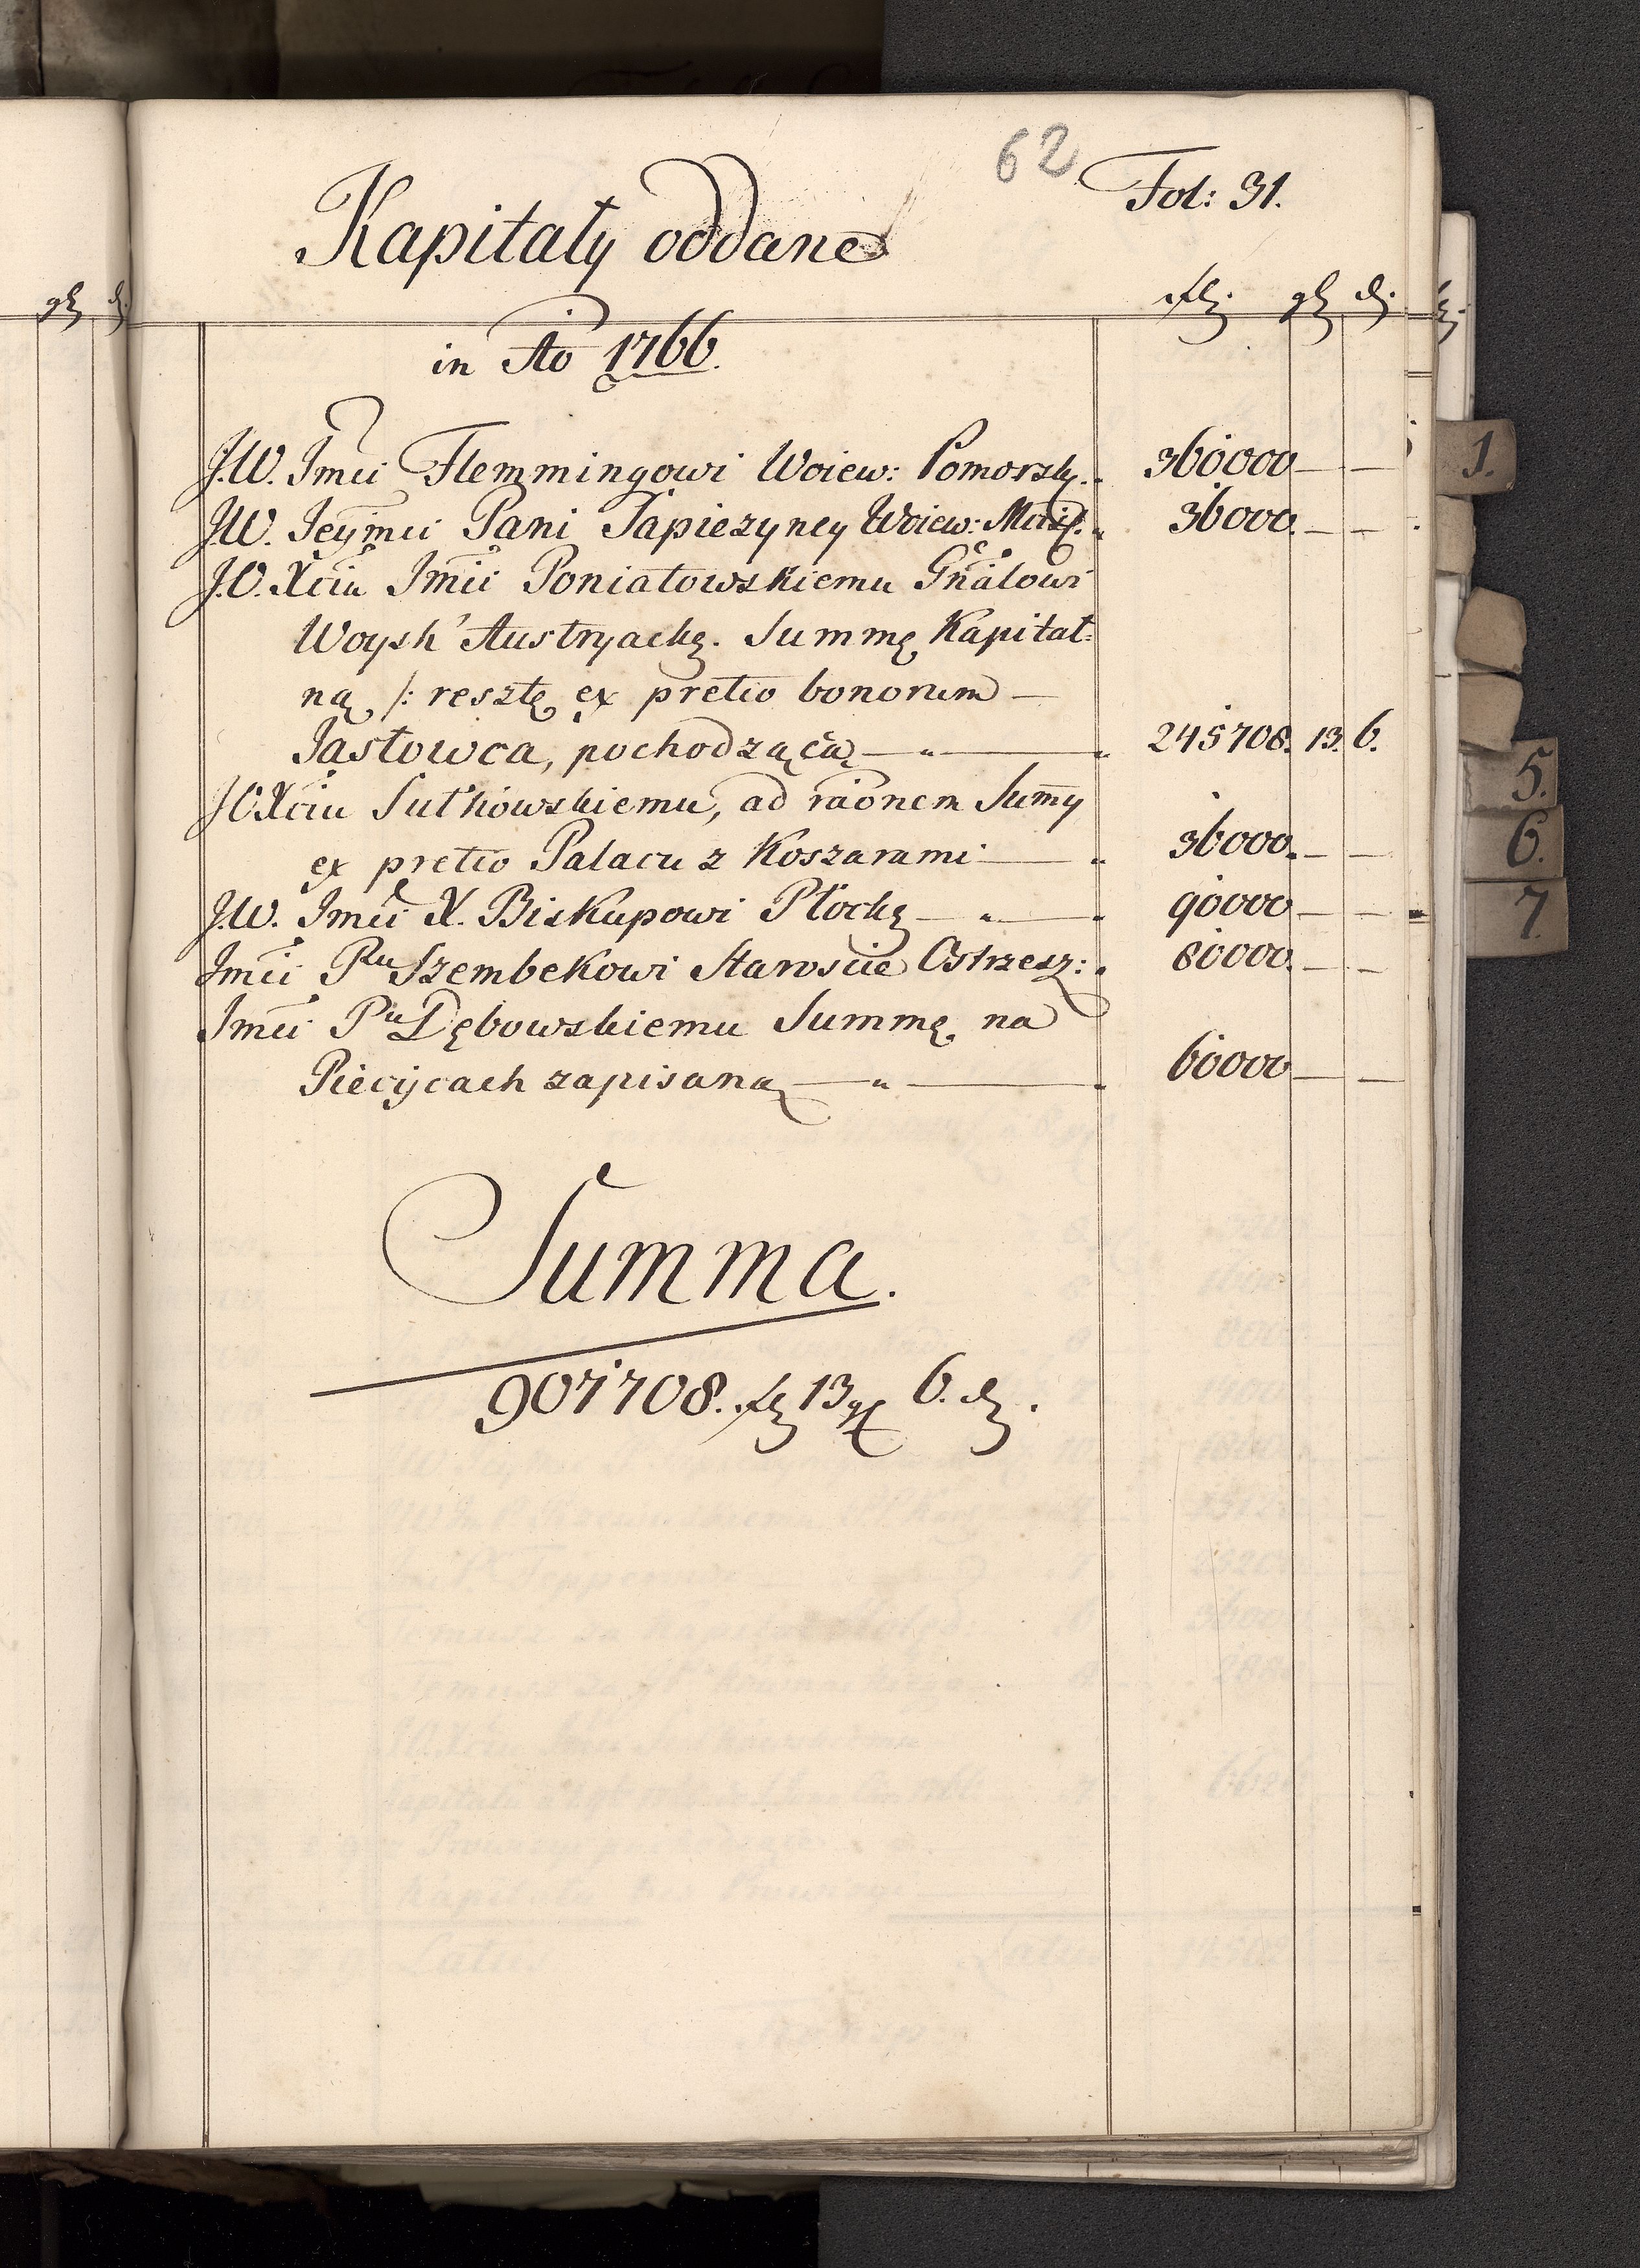 62
Fol: 31.
Kapitały oddane
flz. gl d.
in Ao 1766.
J.W. Jmci Flemmingowi Woiew: Pomorsk. 360000
J.W. Jeymci Pani Sapiezyney Woiew: 36000.
J.O. Xciu Jmci Poniatowskiemu Gnałowi
Woysk Austryack. Summę Kapital:
ną /: resztę ex pretio bonorum
Jasłowca, pochodzącą 245708. 13. 6.
J.O. Xciu Sułkowskiemu, ad raonem Summy
ex pretio Palacu z Koszarami 36000.
J.W. Jmci X. Biskupowi Płock 90000
Jmci Pu Szembekowi Staroscie Ostrzesz: 80000.
Jmci Pu Dębowskiemu Summę na
Piecycach zapisaną 60000
Summa.
907708. fl 13 gl 6. d.
1.
5.
6.
7.